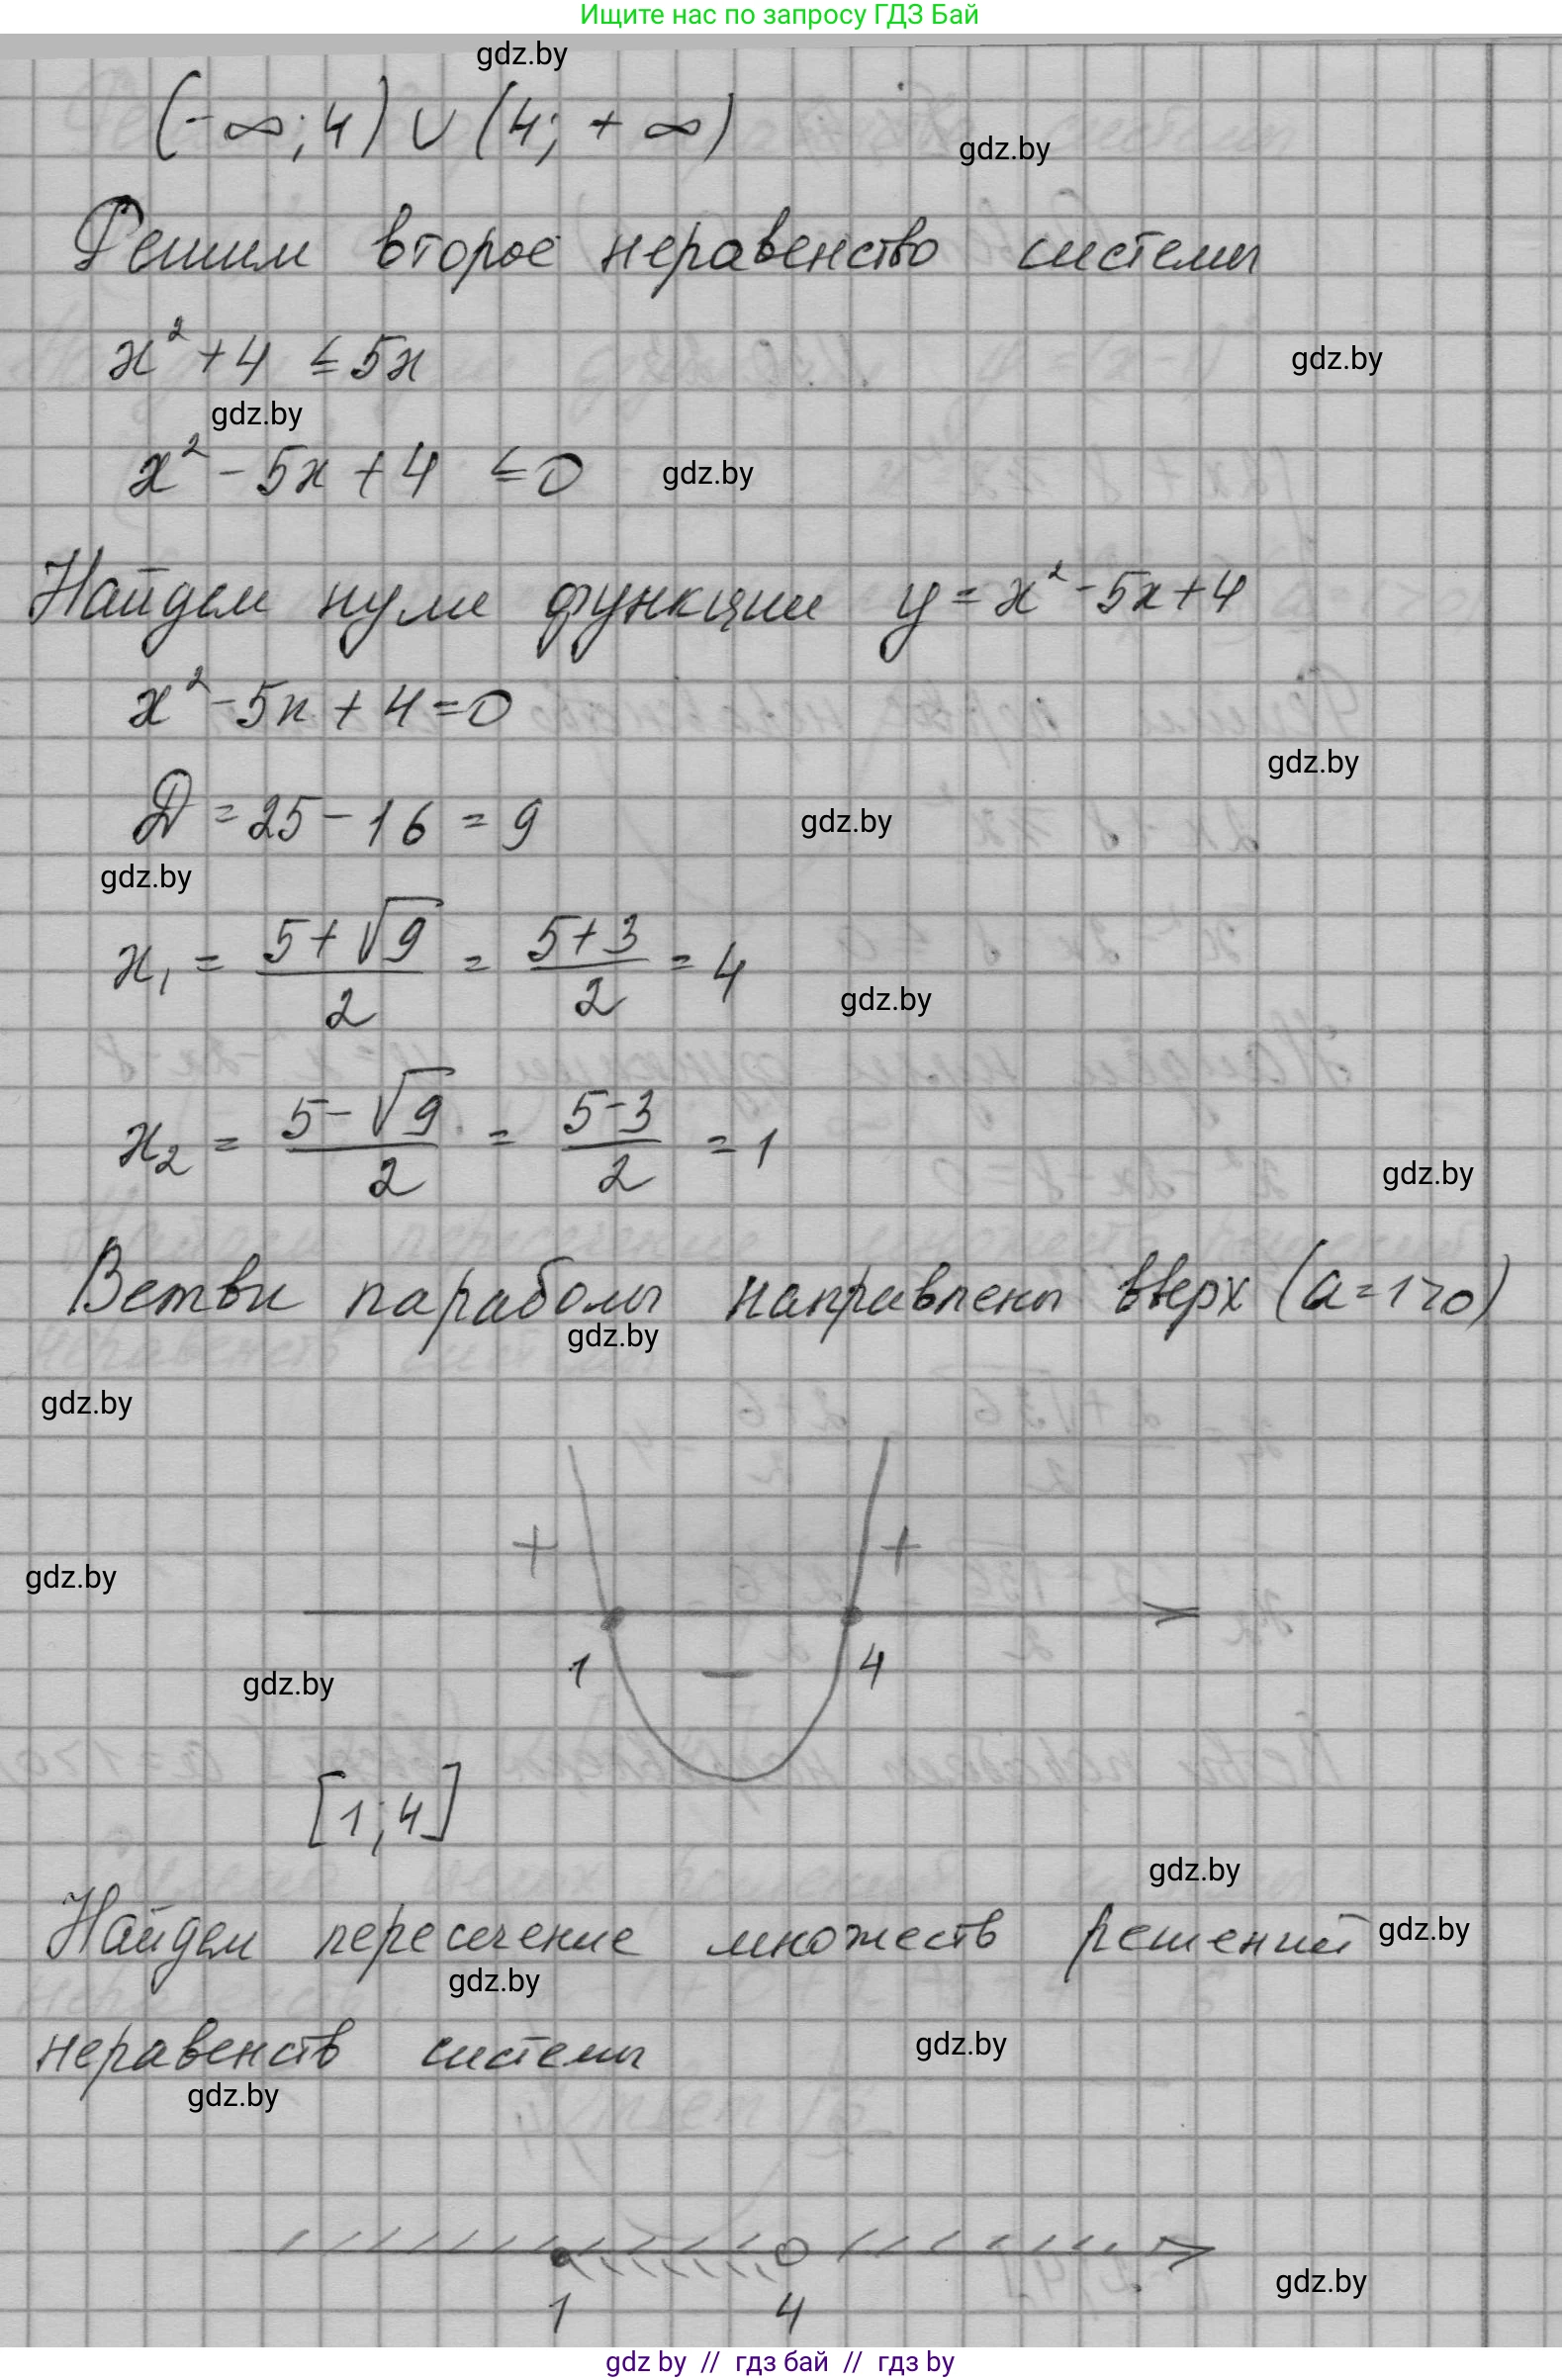 Ищите нас по запросу ГДЗ Бай
gdz.by
(-∞; 4) ∪ (4; +∞)
gdz.by
Решим второе неравенство системы
x² + 4 ≤ 5x
gdz.by
gdz.by
x² - 5x + 4 ≤ 0
gdz.by
Найдем нули функции y = x² - 5x + 4
x² - 5x + 4 = 0
gdz.by
D = 25 - 16 = 9
gdz.by
gdz.by
x₁ = (5 + √9)/2 = (5 + 3)/2 = 4
gdz.by
x₂ = (5 - √9)/2 = (5 - 3)/2 = 1
gdz.by
Ветви параболы направлены вверх (a = 1 > 0)
gdz.by
gdz.by
+ +
gdz.by
1 - 4
gdz.by
[1; 4]
gdz.by
Найдем пересечение множеств решений
gdz.by
gdz.by
неравенств системы
gdz.by
gdz.by
gdz.by
1 4
gdz by // гдз бай // гдз by